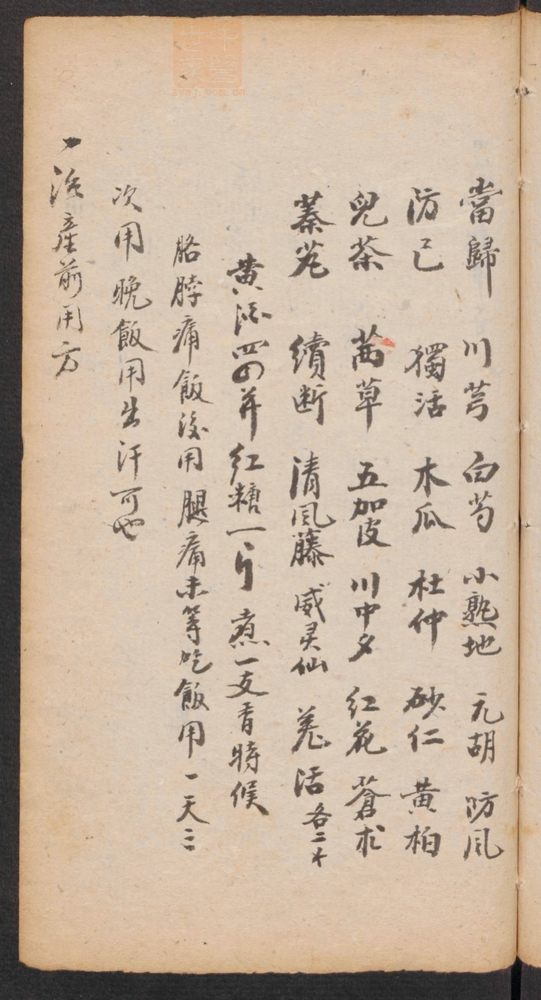 當歸 川芎 白芍 小熟地 元胡 防風
防己 獨活 木瓜 杜仲 砂仁 黃柏
兒茶 茜草 五加皮 川中夕 紅花 蒼朮
秦艽 續断 清風藤 威灵仙 羌活 各二
黄酒四 并紅糖一 煮一支香時候
胳脖痛飯後用 腿痛未等吃飯用 一天三
次用晚飯用出汗可也
一治產前用方